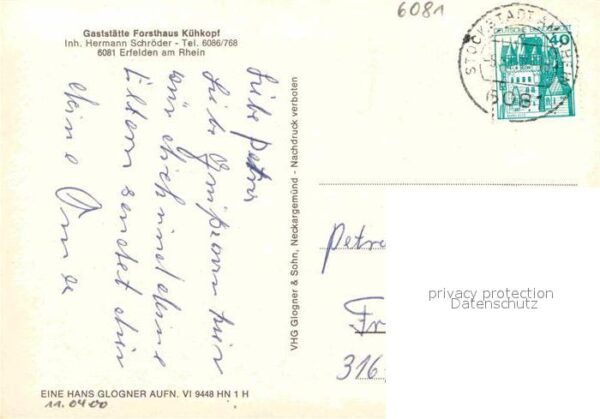 6081
Gaststätte Forsthaus Kühkopf
Inh. Hermann Schröder - Tel. 6086/768
6081 Erfelden am Rhein
STOCKSTADT AM RHEIN
6081
DEUTSCHE BUNDESPOST
40
Liebe Petra
Liebe Grüße von hier
für dich und deine
Eltern sendet dir
deine Oma
VHG Glogner & Sohn, Neckargemünd - Nachdruck verboten
Petra
Fr
316
privacy protection
Datenschutz
EINE HANS GLOGNER AUFN. VI 9448 HN 1 H
11.0400